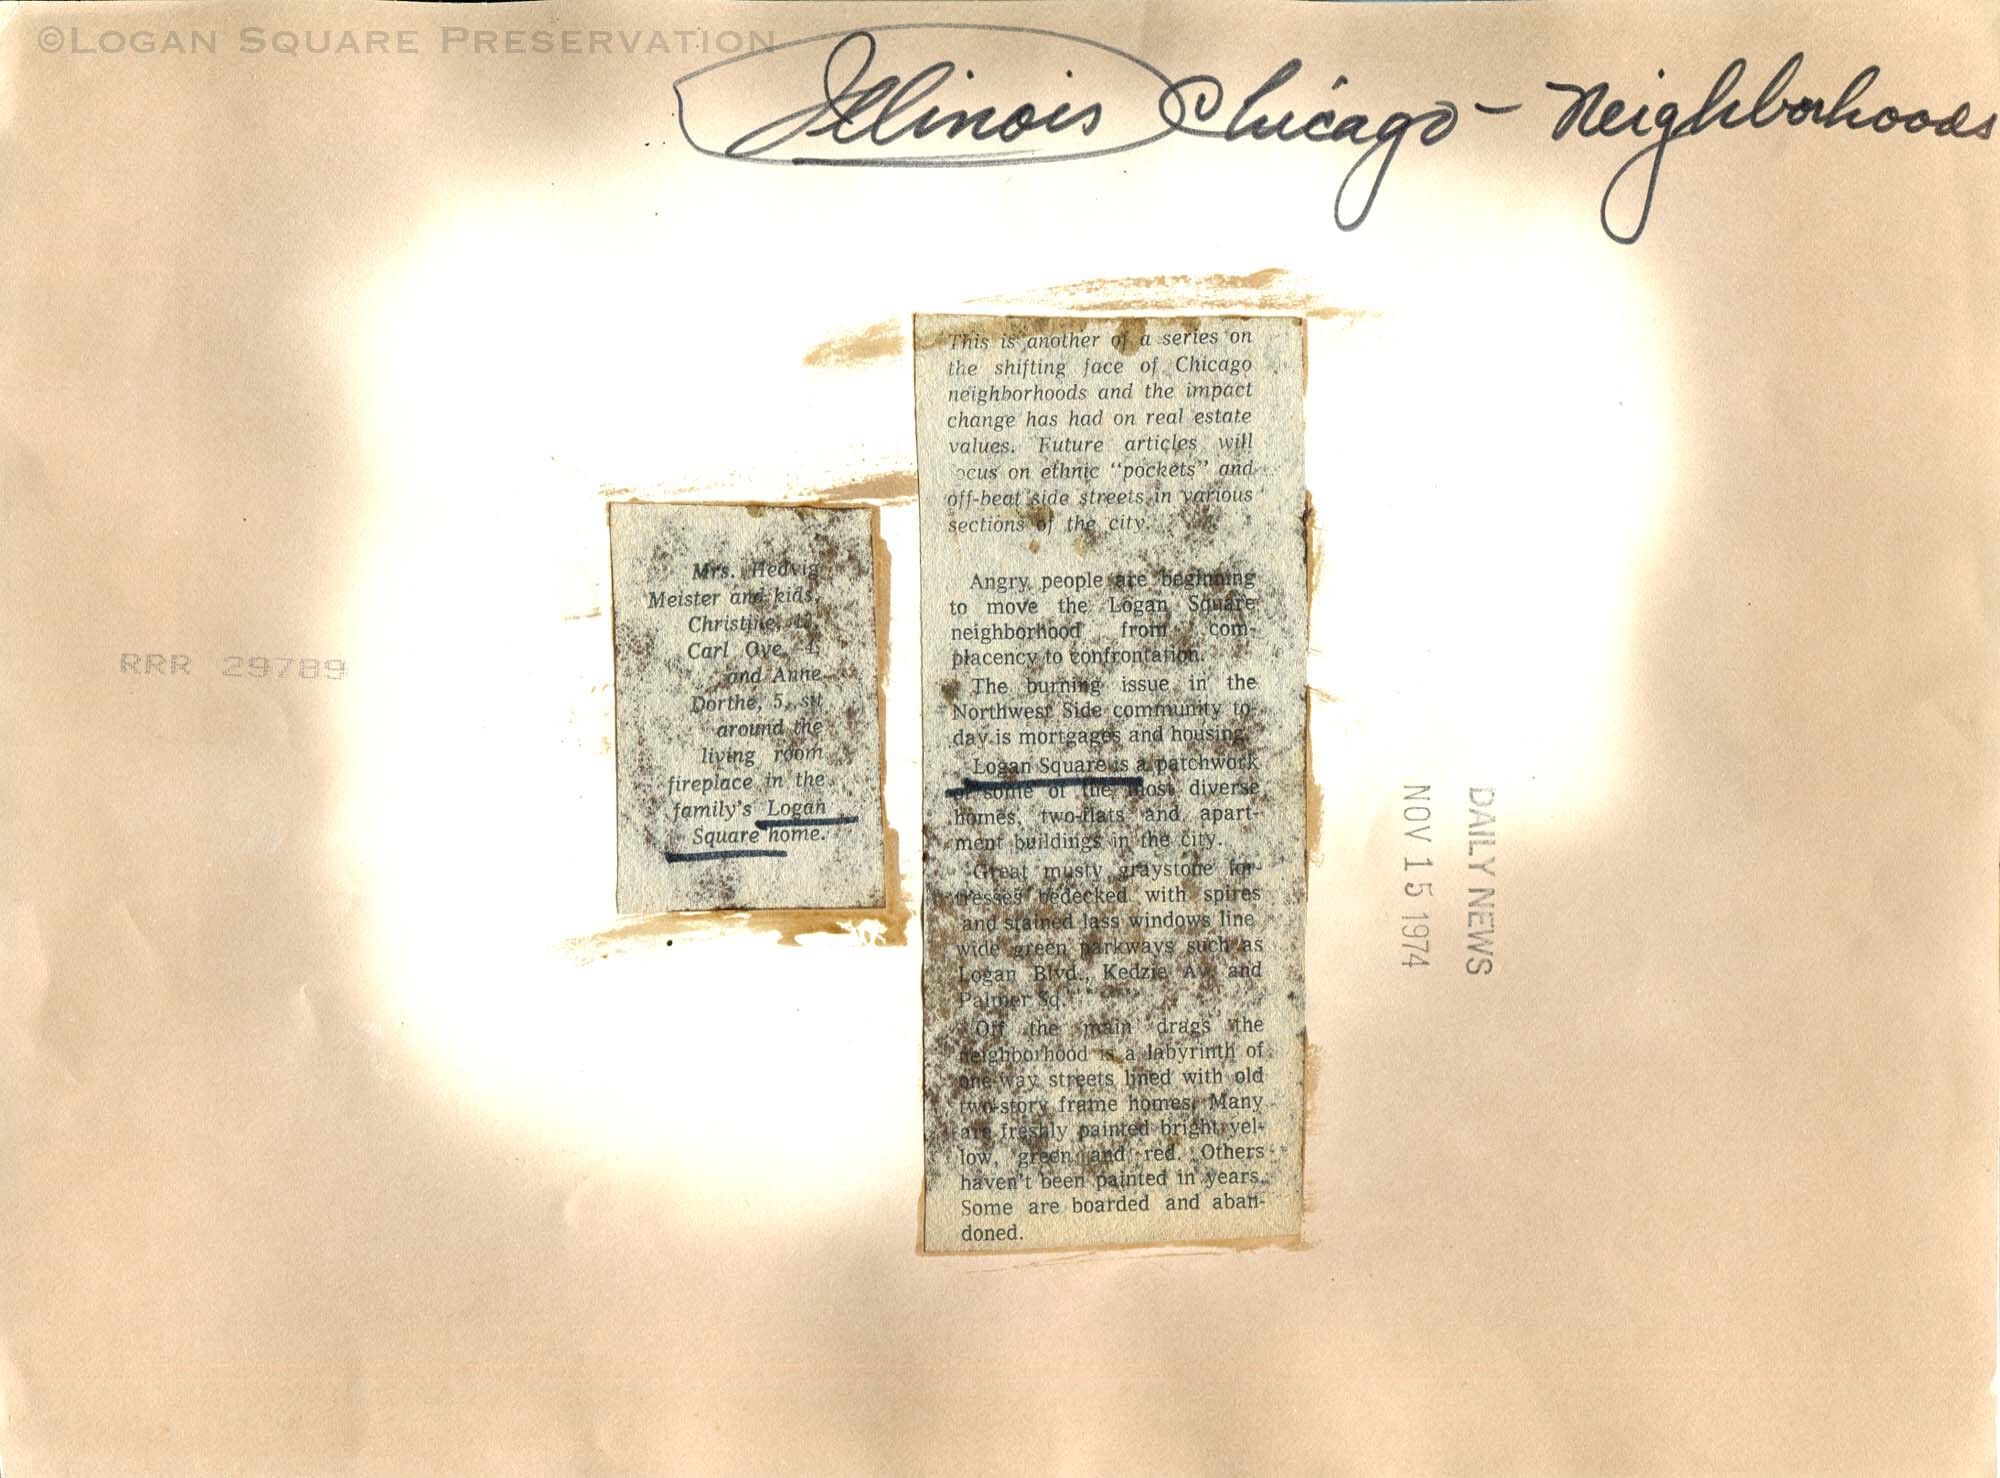 ©LOGAN SQUARE PRESERVATION
Illinois Chicago - Neighborhoods
Mrs. Hedvig
Meister and kids,
Christine,
Carl Ove, 4,
and Anne
Dorthe, 5, sit
around the
living room
fireplace in the
family's Logan
Square home.
This is another of a series on
the shifting face of Chicago
neighborhoods and the impact
change has had on real estate
values. Future articles will
ocus on ethnic "pockets" and
off-beat side streets in various
sections of the city.
Angry people are beginning
to move the Logan Square
neighborhood from com-
placency to confrontation.
The burning issue in the
Northwest Side community to-
day is mortgages and housing.
Logan Square is a patchwork
of some of the most diverse
homes, two-flats and apart-
ment buildings in the city.
Great musty graystone for-
tresses bedecked with spires
and stained lass windows line
wide green parkways such as
Logan Blvd., Kedzie Av. and
Palmer Sq.
Off the main drags the
neighborhood is a labyrinth of
one-way streets lined with old
two-story frame homes. Many
are freshly painted bright yel-
low, green and red. Others
haven't been painted in years.
Some are boarded and aban-
doned.
RRR 29789
DAILY NEWS
NOV 15 1974